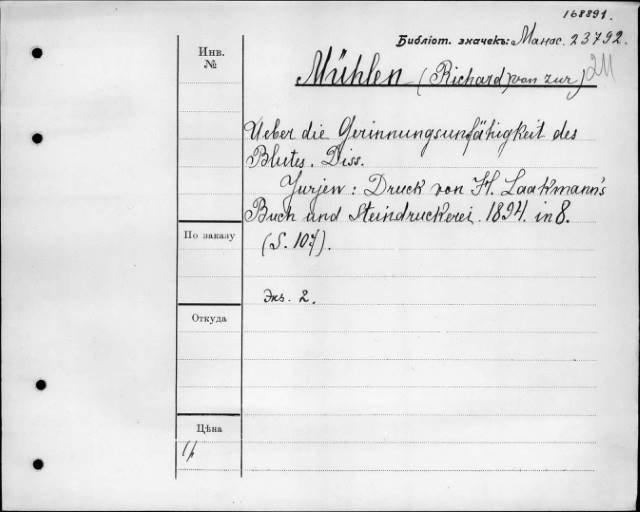 168891.
Библіот. значекъ: Манас. 23792.
Инв.
№
Mühlen (Richard) von zur)
Ueber die Gerinnungsunfähigkeit des
Blutes. Diss.
Jurjen: Druck von H. Laakmann's
Buch und Steindruckerei. 1894. in 8.
По заказу
(S. 107).
Экз. 2.
Откуда
Цѣна